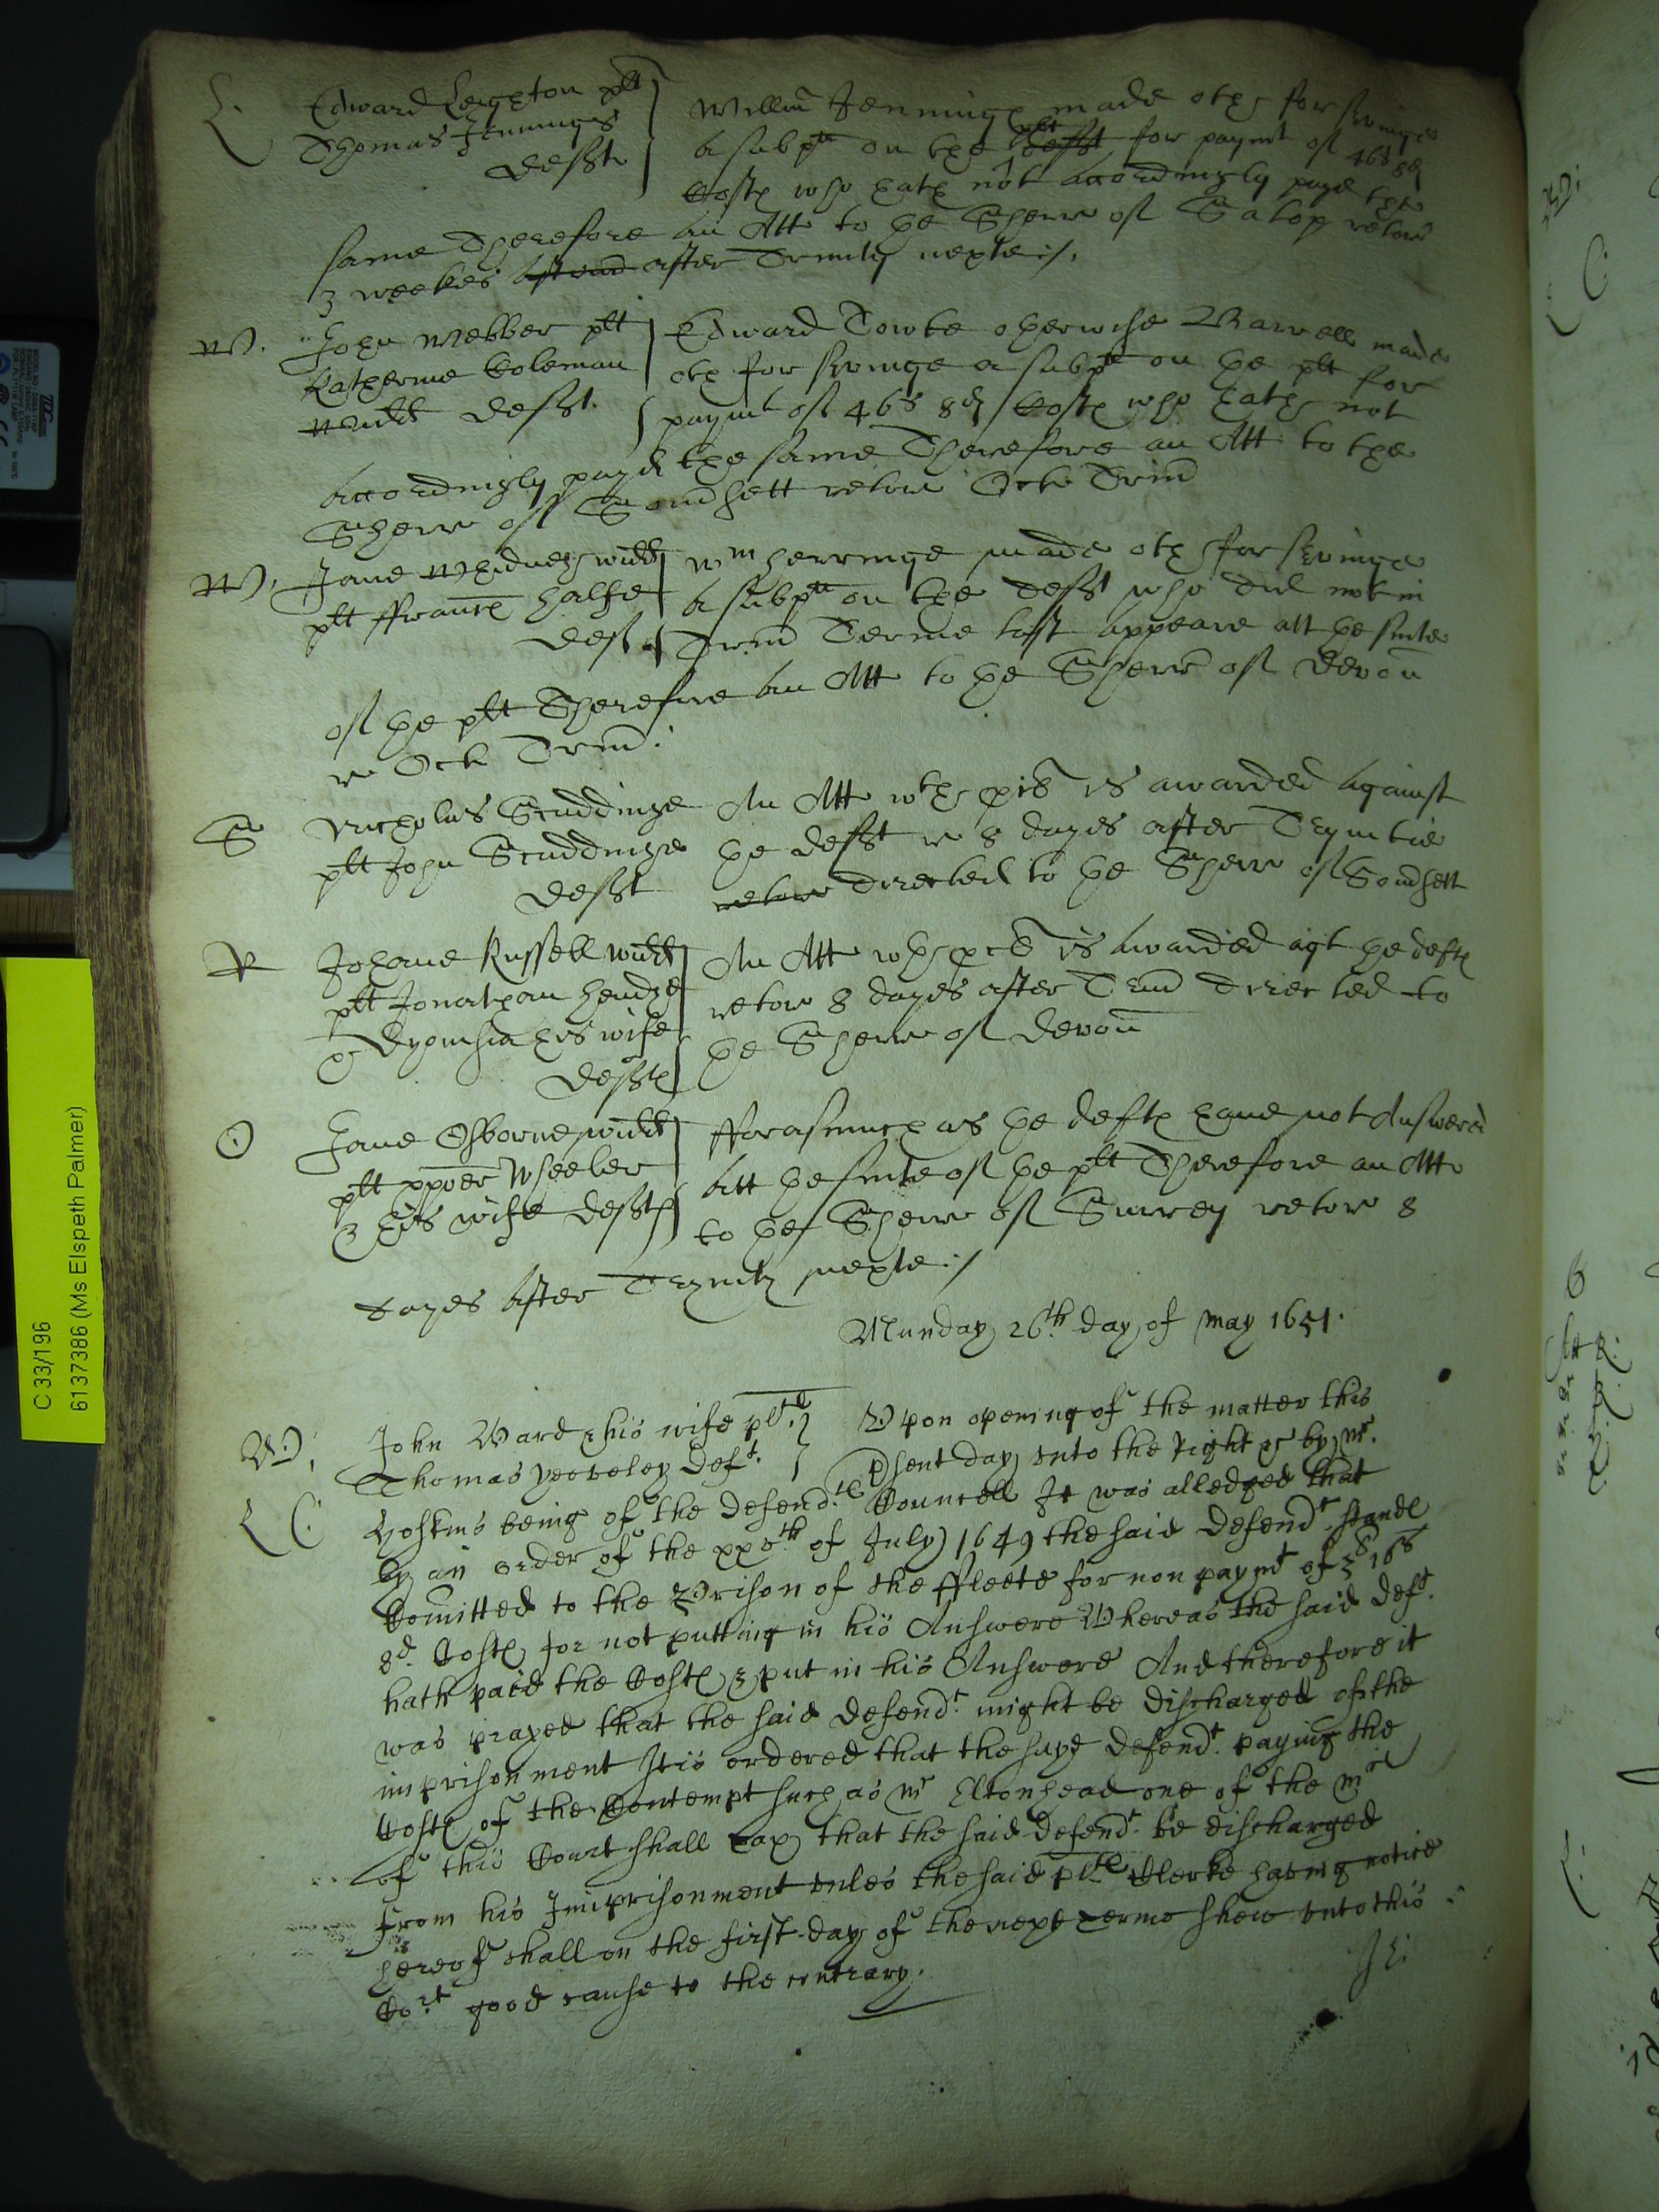 L. Edward Leighton plt Willm Jennings made oth for servinge
Thomas Jennings a subp on the plt defft for paymt of 46s 8d
defft Costs who hath not accordingly payd the
same Therefore an Att to the Sherr of Salop retor
3 weekes after Trinity nexte :/.
W. John Webber plt Edward Cooke otherwise Barwell made
Katherine Coleman oth for servinge a subp on the plt for
widd defft. paymt of 46s 8d Costs who hath not
accordingly payd the same Therefore an Att to the
Sherr of Somsett retor Octo Trin
W. Jane Widney widd Wm Herringe made oth for servinge
plt ffraunc Halse a subp on the defft who did not in
def Trin Terme last appeare att the suite
of the plt Therefore an Att to the Sherr of Devon
re Octo Trin.
S Nicholas Scuddinge An Att wth pcs is awarded against
plt John Scuddinge the defft re 8 dayes after Trynitie
defft retor directed to the Sherr of Somsett
R Johane Russell widd An Att wth pcs is awarded agt the defts
plt Jonathan Hendye retor 8 dayes after Trin directed to
& Dyonisia his wife the Sherr of Devon
deffts
O Jane Osborne widd fforasmuch as the defts have not Answered
plt Wheeler att the suite of the plt Therefore an Att
& his wife deffts to the Sherr of Surrey retor 8
dayes after Trynity nexte :/
Munday 26th day of May 1651.
W. John Ward & his wife plts. Upon opening of the matter this
Thomas deft. psent day unto the right &c by Mr.
LC: Hoskins being of the defendts Councell It was alledged that
by an order of the xxvth of July 1649 the said defendt stands
Comitted to the Prison of the ffleete for non paymt of 3l 16s
8d. Costs for not putting in his Answere Whereas the said deft.
hath paid the Costs & put in his Answere And therefore it
was prayed that the said defendt. might be discharged of the
imprisonment It is ordered that the sayd defendt. paying the
Costs of the Contempt such as Mr Eltonhead one of the Mrs
of this Court shall tax that the said defendt. be discharged
from his Imprisonment unles the said plts Clerke having notice
hereof shall on the first day of the next terme shew unto this
Cort good cause to the contrary.
C 33/196
6137386 (Ms Elspeth Palmer)